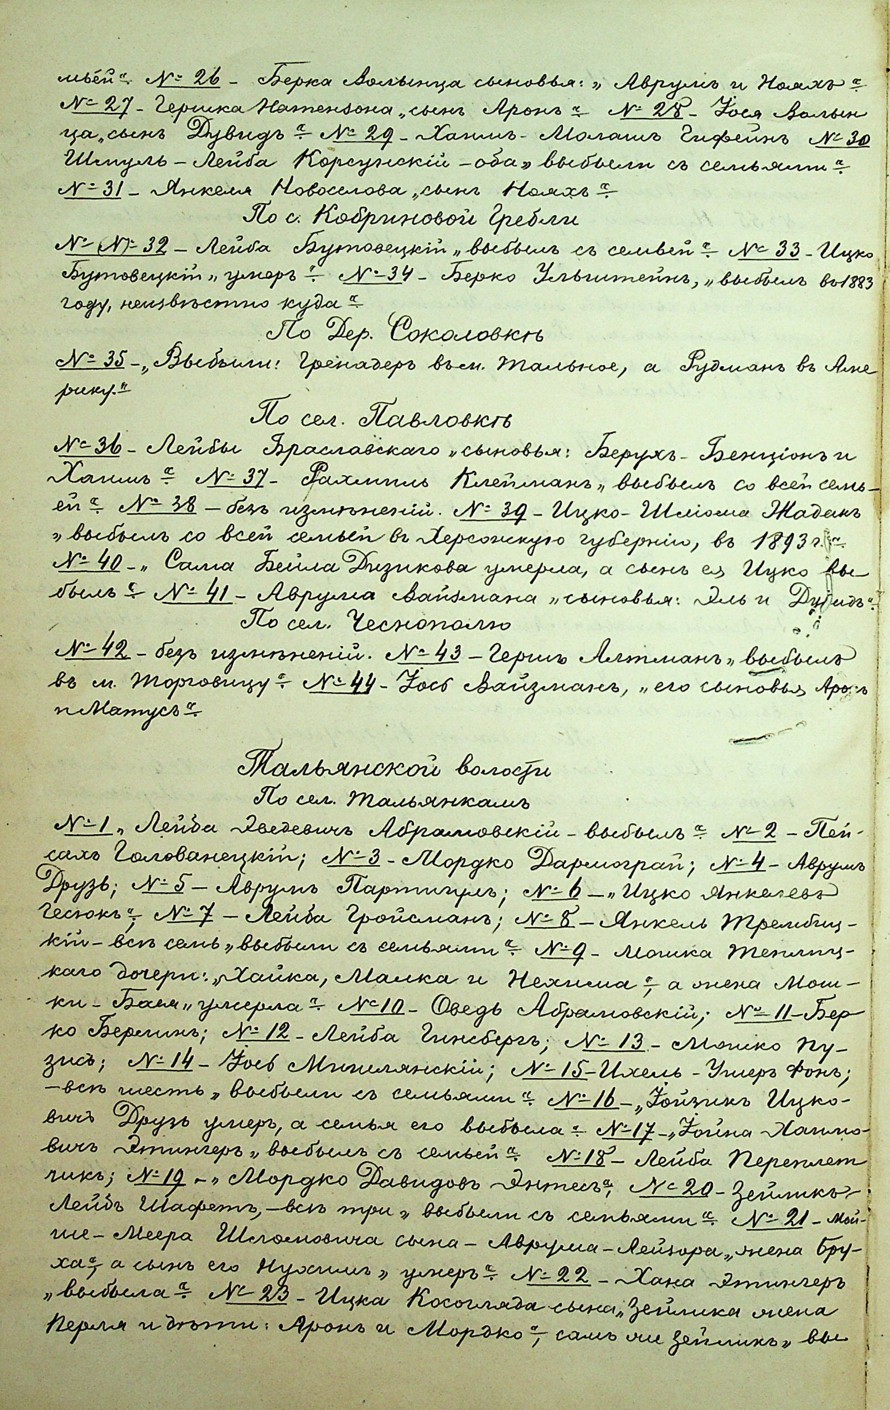 мьей“. № 26 – Берка Волынца сыновья: „Аврумъ и Нояхъ“
№ 27 – Гершка Натензона „сынъ Аронъ“ № 28 – Іося Волын
ца „сынъ Дувидъ“ № 29 – Хаимъ-Молашъ Гифейнъ № 30
Шмуль-Лейба Корсунскій – оба „выбыли съ семьями“
№ 31 – Янкеля Новоселова „сынъ Нояхъ“
По с. Кобриновой Гребли
№№ 32 – Лейба Бутовецкій „выбылъ съ семьей“ № 33 – Ицко
Бутовецкій „умеръ“ № 34 – Берко Ульштейнъ, „выбылъ въ 1883
году, неизвѣстно куда“
По Дер. Соколовкѣ
№ 35 – „Выбыли: Гренадеръ въ м. Тальное, а Рудманъ въ Аме
рику.“
По сел. Павловкѣ
№ 36 – Лейбы Браславскаго „сыновья: Берухъ-Бенціонъ и
Хаимъ“ № 37 – Рахмиль Клейманъ „выбылъ со всей семь-
ей“ № 38 – безъ измѣненій. № 39 – Ицко-Шліома Жадакъ
„выбылъ со всей семьей въ Херсонскую губернію, въ 1893 г.“
№ 40 – „Сама Бейла Дизикова умерла, а сынъ ея Ицко вы
былъ“ № 41 – Аврума Вайзмана „сыновья: Эль и Дувидъ“
По сел. Чеснополю
№ 42 – безъ измѣненій. № 43 – Гершъ Алтманъ „выбылъ
въ м. Торговицу“ № 44 – Іосъ Вайзманъ, „его сыновья Аронъ
и Матусъ“
Тальянской волости
По сел. Тальянкамъ
№ 1 „Лейба Эведевичъ Абрамовскій – выбылъ“ № 2 – Пей-
сахъ Голованецкій; № 3 – Мордко Дармограй; № 4 – Аврумъ
Друзь; № 5 – Аврумъ Партигулъ; № 6 – „Ицко Янкелевъ
Гесюкъ“, № 7 – Лейба Гройсманъ; № 8 – Янкель Трембиц-
кій – всѣ семь „выбыли съ семьями“ № 9 – Мошка Теплиц-
каго дочери: „Хайка, Малка и Нехима“, а жена Мош-
ки – Бася „умерла“ № 10 – Оведь Абрамовскій; № 11 – Бер
ко Берлинъ; № 12 – Лейба Гинсбергъ; № 13 – Мошко Пу-
зисъ; № 14 – Іосъ Мишлянскій; № 15 – Ихель-Умеръ Фонъ;
– всѣ шесть „выбыли съ семьями“ № 16 – „Іойзикъ Ицко-
вичъ Друзь умеръ, а семья его выбыла“ № 17 – „Іойна Хаимо-
вичъ Этингеръ „выбылъ съ семьей“ № 18 – Лейба Переплет
чикъ; № 19 – „Мордко Давидовъ Энтесъ“, № 20 – Зейликъ-
Лейбъ Шафетъ, – всѣ три „выбыли съ семьями“ № 21 – Мой-
ше-Меера Шломовича сына – Аврума-Лейзора „жена Бру-
ха“, а сынъ его Нухимъ „умеръ“ № 22 – Хана Этингеръ
„выбыла“ № 23 – Ицка Косогляда сына „Зейлика жена
Перля и дѣти: Аронъ и Мордко“, самъ же Зейликъ „вы